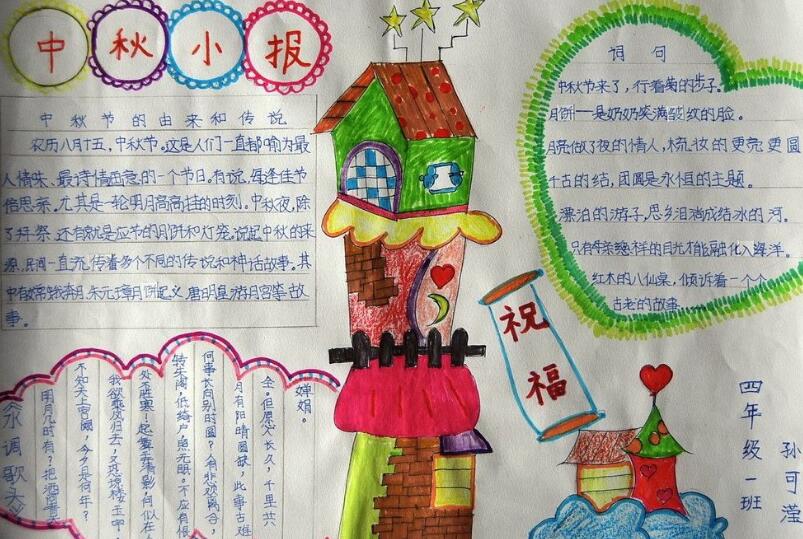 中秋小报
中秋节的由来和传说
农历八月十五，中秋节。这是人们一直都喻为最
人情味、最诗情画意的一个节日。有说，每逢佳节
倍思亲。尤其是一轮明月高高挂的时刻。中秋夜，除
了拜祭，还有就是应节的月饼和灯笼。说起中秋的来
源，民间一直流传着多个不同的传说和神话故事。其
中有嫦娥奔月、朱元璋月饼起义、唐明皇游月宫等故
事。
词句
中秋节来了，行着菊的步子。
月饼——是奶奶笑满皱纹的脸。
月亮做了夜的情人，梳妆的更亮更圆
千古的结，团圆是永恒的主题。
漂泊的游子，思乡泪滴成结冰的河。
只有母亲慈祥的目光才能融化入海洋。
红木的八仙桌，倾诉着一个个
古老的故事
祝福
四年级一班
孙可滢
水调歌头
明月几时有？把酒问青
不知天上宫阙，今夕是何年？
我欲乘风归去，又恐琼楼玉宇，
处不胜寒！起舞弄清影，何似在
转朱阁，低绮户，照无眠。不应有恨
何事长向别时圆？人有悲欢离合，
月有阴晴圆缺，此事古难
全。但愿人长久，千里共
婵娟。